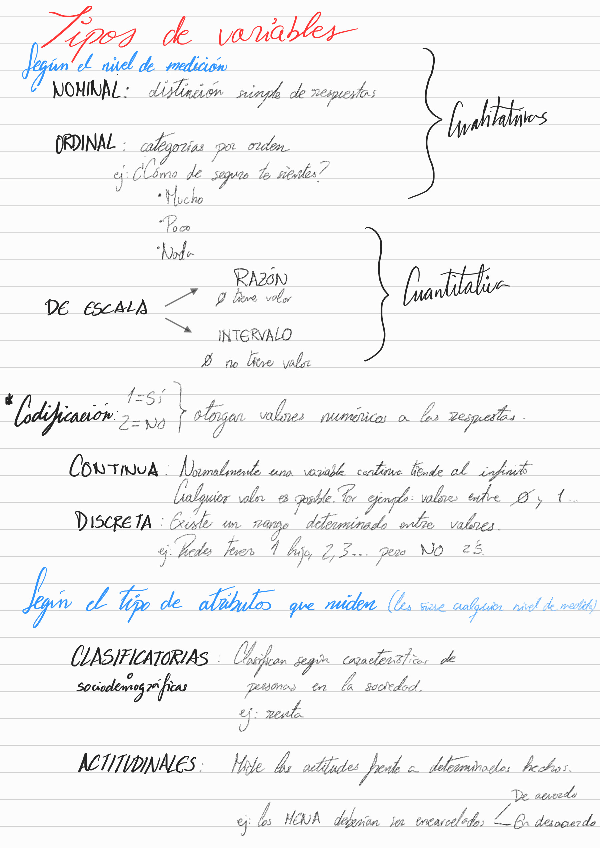 Tipos de variables
Según el nivel de medición
NOMINAL: distinción simple de respuestas
Cualitativas
ORDINAL: categorías por orden
ej: ¿Cómo de seguro te sientes?
• Mucho
• Poco
• Nada
RAZÓN
Ø tiene valor
Cuantitativa
DE ESCALA
INTERVALO
Ø no tiene valor
* Codificación: 1=Sí
2=NO
otorgar valores numéricos a las respuestas.
CONTINUA: Normalmente una variable continua tiende al infinito
Cualquier valor es posible. Por ejemplo: valores entre Ø y 1...
DISCRETA: Existe un rango determinado entre valores.
ej: Puedes tener 1 hijo, 2, 3... pero NO 2'3.
Según el tipo de atributos que miden (les sirve cualquier nivel de medida)
CLASIFICATORIAS: Clasifican según características de
o sociodemográficas personas en la sociedad.
ej: renta
ACTITUDINALES: Mide las actitudes frente a determinados hechos.
De acuerdo
ej: los MENA deberían ser encarcelados
En desacuerdo